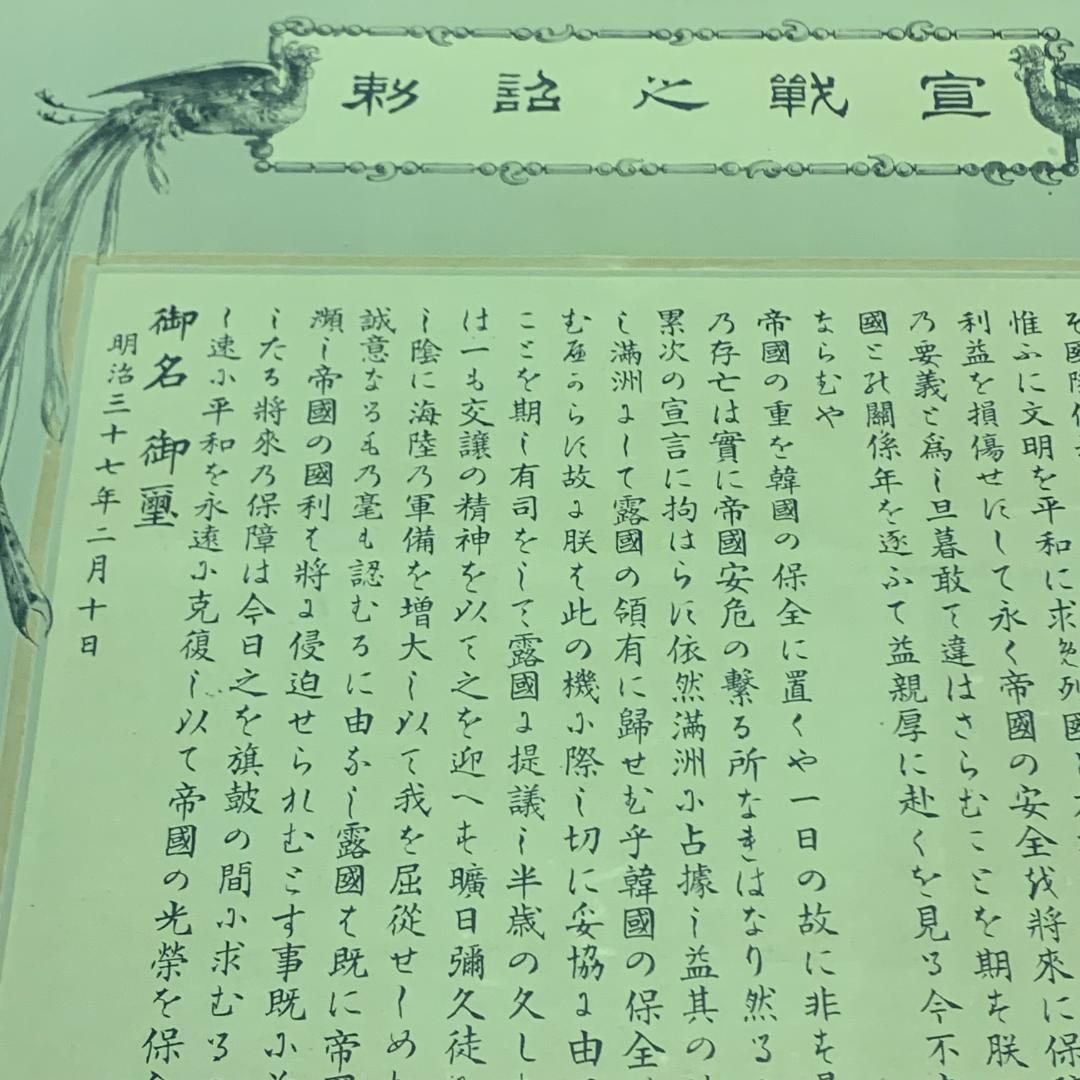 宣戰之詔勅
惟ふに文明を平和に求め列國と
利益を損傷せすして永く帝國の安全を將來に保
の要義と爲し旦暮敢て違はさらむことを期す朕
國との關係年を逐ふて益親厚に赴くを見る今不
ならむや
帝國の重を韓國の保全に置くや一日の故に非す
の存亡は實に帝國安危の繫る所なきはなり然る
累次の宣言に拘はらす依然滿洲に占據し益其の
し滿洲にして露國の領有に歸せむ乎韓國の保全
むへからす故に朕は此の機に際し切に妥協に由
ことを期し有司をして露國に提議し半歳の久し
は一も交讓の精神を以て之を迎へす曠日彌久徒
し陰に海陸の軍備を增大し以て我を屈從せしめ
誠意なるもの毫も認むるに由なし露國は既に帝
瀕し帝國の國利は將に侵迫せられむとす事既に
したる將來の保障は今日之を旗鼓の間に求むる
し速に平和を永遠に克復し以て帝國の光榮を保
御名 御璽
明治三十七年二月十日